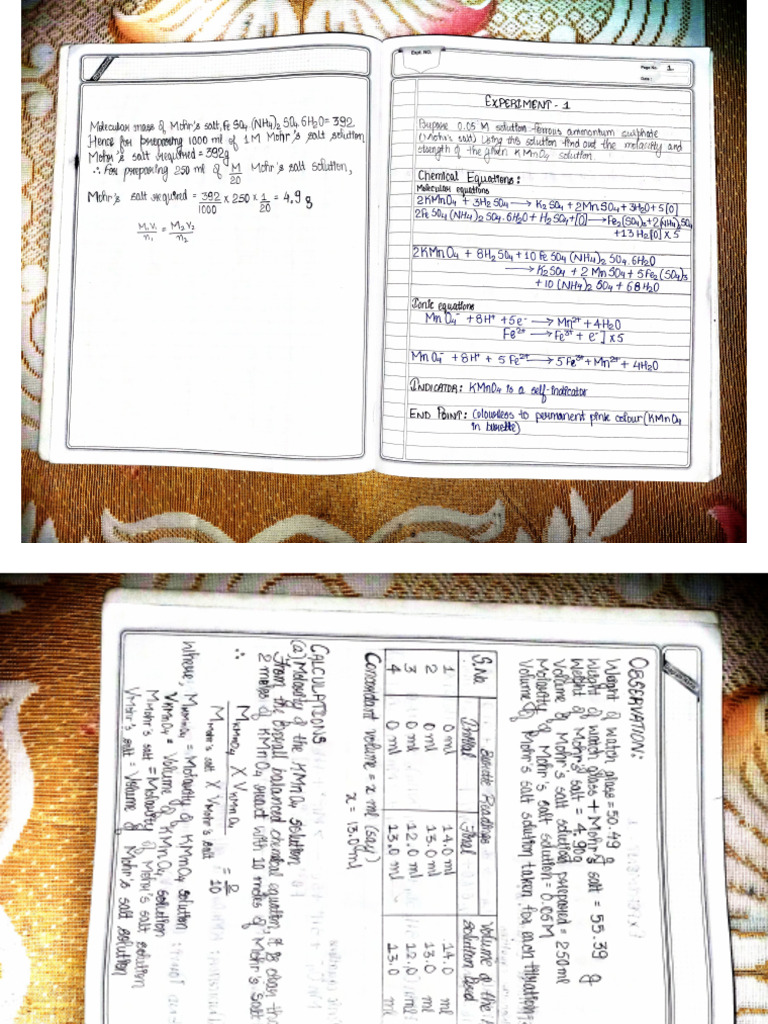 Molecular mass of Mohr's salt, FeSO4.(NH4)2SO4.6H2O = 392
Hence for preparing 1000 ml of 1M Mohr's salt solution
Mohr's salt required = 392g
∴ For preparing 250 ml of M/20 Mohr's salt solution,
Mohr's salt required = 392/1000 x 250 x 1/20 = 4.9 g
M1V1/n1 = M2V2/n2
Expt. NO.
Page No. 1
Date :
EXPERIMENT - 1
Prepare 0.05 M solution ferrous ammonium sulphate
(Mohr's salt) Using this solution find out the molarity and
strength of the given KMnO4 solution.
Chemical Equations:
Molecular equations
2KMnO4 + 3H2SO4 → K2SO4 + 2MnSO4 + 3H2O + 5[O]
2FeSO4(NH4)2SO4.6H2O + H2SO4 + [O] → Fe2(SO4)3 + 2(NH4)2SO4
+ 13H2[O] x 5
2KMnO4 + 8H2SO4 + 10FeSO4(NH4)2SO4.6H2O
→ K2SO4 + 2MnSO4 + 5Fe2(SO4)3
+ 10(NH4)2SO4 + 68H2O
Ionic equations
MnO4⁻ + 8H⁺ + 5e⁻ → Mn²⁺ + 4H2O
Fe²⁺ → Fe³⁺ + e⁻] x 5
MnO4⁻ + 8H⁺ + 5Fe²⁺ → 5Fe³⁺ + Mn²⁺ + 4H2O
INDICATOR: KMnO4 is a self-indicator
END POINT: Colourless to permanent pink colour (KMnO4
in burette)
OBSERVATION:
Weight of watch glass = 50.49 g
Weight of watch glass + Mohr's salt = 55.39 g
Weight of Mohr's salt = 4.90g
Volume of Mohr's salt solution prepared = 250ml
Molarity of Mohr's salt solution = 0.05M
Volume of Mohr's salt solution taken for each titration =
S.No. Burette Readings Volume of the
Initial Final solution used
1 0 ml 14.0 ml 14.0 ml
2 0 ml 13.0 ml 13.0 ml
3 0 ml 12.0 ml 12.0 ml
4 0 ml 13.0 ml 13.0 ml
Concordant volume = x ml (say)
x = 13.0 ml
CALCULATIONS
(a) Molarity of the KMnO4 solution
From the overall balanced chemical equation, it is clear tha
2 moles of KMnO4 react with 10 moles of Mohr's salt
∴ MKMnO4 X VKMnO4 / MMohr's salt X VMohr's salt = 2/10
where, MKMnO4 = Molarity of KMnO4 solution
VKMnO4 = Volume of KMnO4 solution
MMohr's salt = Molarity of Mohr's salt solution
VMohr's salt = Volume of Mohr's salt solution